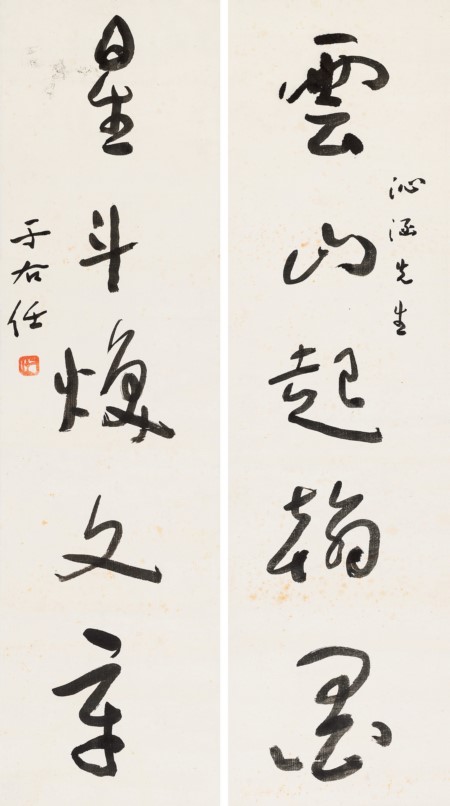 雲山起翰墨
沁涵先生
星斗焕文章
于右任